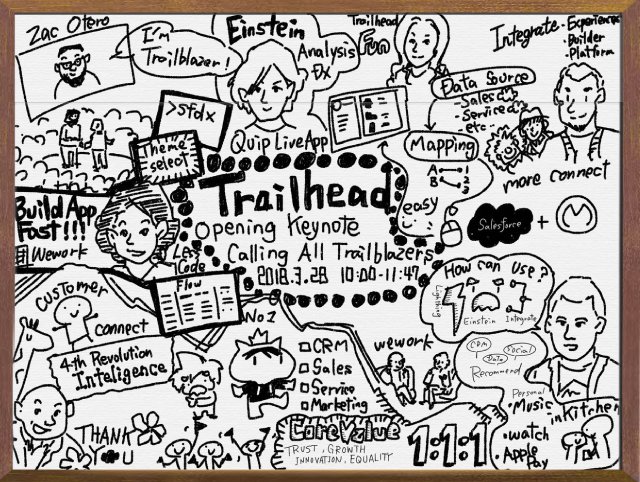 Zac Otero
I'm
Trailblazer!
Einstein
Analysis
DX
Trailhead
Fun
Integrate
・Experiences
・Builder
・Platform
Data Source
- Sales
- Service
- etc
>sfdx
Theme
select
Quip LiveApp
Mapping
A
B
1
2
easy
more connect
Salesforce
+
Trailhead
Opening Keynote
Calling All Trailblazers
2018.3.28 10:00-11:47
Build App
Fast!!!
Wework
Less
Code
Flow
No1
How can Use?
Lightning
Einstein
Integrate
Customer
connect
4-th Revolution
Inteligence
THANK
YOU
CRM
Sales
Service
Marketing
wework
CRM
Social
Data
Recommend
Personal
・Music
in Kitchen
・watch
・Apple
Pay
CoreValue
TRUST, GROWTH
INNOVATION, EQUALITY
1:1:1